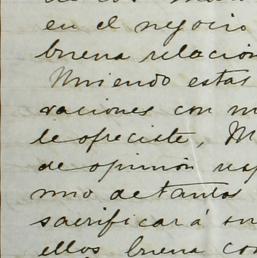 en el negocio
buena relacion
Uniendo estas
raciones con m
le ofreciste, M
de opinión resp
mo de tanta
sacrificará su
ellos buena co